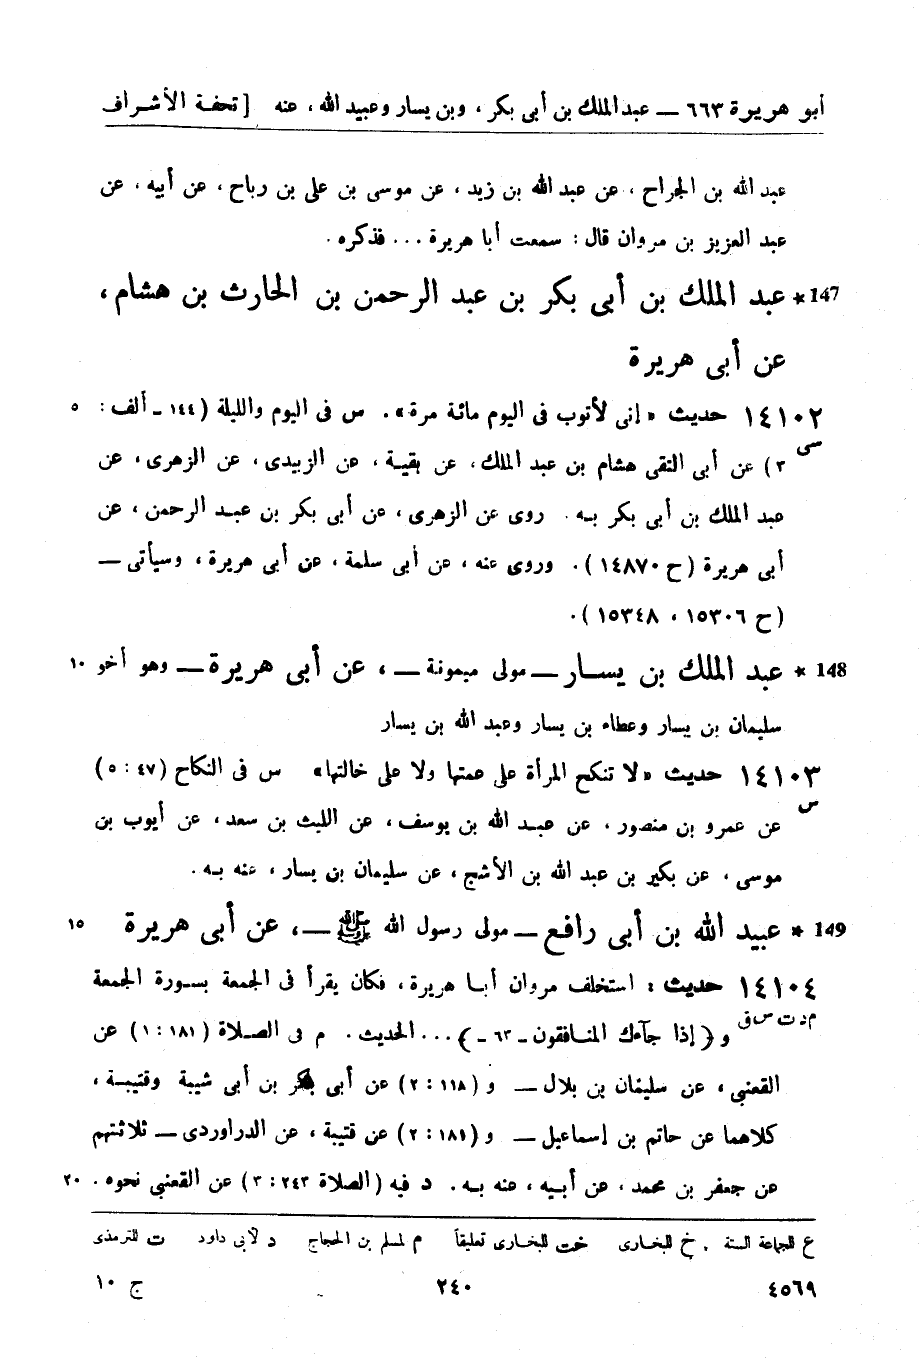 أبو هريرة ٦٦٣ ــ عبد الملك بن أبى بكر ، وبن يسار وعبيد الله ، عنه [ تحفة الأشراف
عبد الله بن الجراح ، عن عبد الله بن زيد ، عن موسى بن على بن رباح ، عن أبيه ، عن
عبد العزيز بن مروان قال : سمعت أبا هريرة ... فذكره .
147 * عبد الملك بن أبى بكر بن عبد الرحمن بن الحارث بن هشام ،
عن أبى هريرة
١٤١٠٢ حديث « إنى لأتوب فى اليوم مائة مرة » . س فى اليوم والليلة (١٤٤ ـ ألف : ٥
سى ٣) عن أبى التقى هشام بن عبد الملك ، عن بقية ، عن الزبيدى ، عن الزهرى ، عن
عبد الملك بن أبى بكر بـه . روى عن الزهرى ، عن أبى بكر بن عبـد الرحمن ، عن
أبى هريرة (ح ١٤٨٧٠) . وروى عنه ، عن أبى سلمة ، عن أبى هريرة ، وسيأتى ــ
(ح ١٥٣٠٦ ، ١٥٣٤٨) .
148 * عبد الملك بن يسـار ــ مولى ميمونة ــ ، عن أبى هريرة ــ وهو أخو ١٠
سليمان بن يسار وعطاء بن يسار وعبد الله بن يسار
١٤١٠٣ حديث « لا تنكح المرأة على عمتها ولا على خالتها » س فى النكاح (٤٧ : ٥)
س عن عمرو بن منصور ، عن عبـد الله بن يوسف ، عن الليث بن سعد ، عن أيوب بن
موسى ، عن بكير بن عبد الله بن الأشج ، عن سليمان بن يسار ، عنه بـه .
149 * عبيد الله بن أبى رافع ــ مولى رسول الله ﷺ ــ ، عن أبى هريرة ١٥
١٤١٠٤ حديث : استخلف مروان أبـا هريرة ، فكان يقرأ فى الجمعة بسـورة الجمعة
م د ت س ق و ﴿ إذا جآءك المنـافقون ـ ٦٣ ـ ﴾ ... الحديث . م فى الصـلاة (١٨١ : ١) عن
القعنبى ، عن سليمان بن بلال ــ و (١١٨ : ٢) عن أبى بكر بن أبى شيبة وقتيبـة ،
كلاهما عن حاتم بن إسماعيل ــ و (١٨١ : ٢) عن قتيبة ، عن الدراوردى ــ ثلاثتهم
عن جعفر بن محمد ، عن أبيـه ، عنه بـه . د فيه (الصلاة ٢٤٣ : ٣) عن القعنبى نحوه . ٢٠
ع للجماعة الستة . خ للبخـارى خت للبخارى تعليقاً م لمسلم بن الحجاج د لأبى داود ت للترمذى
٤٥٦٩ ٢٤٠ ج ١٠